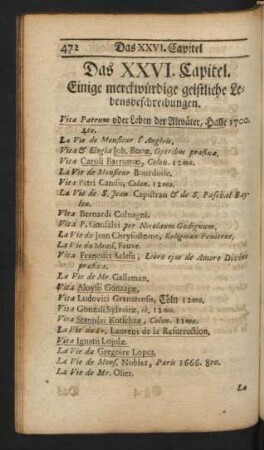 472 Das XXVI. Capitel
Das XXVI. Capitel.
Einige merckwürdige geistliche Le-
bensbeschreibungen.
Vita Patrum oder Leben der Altväter, Halle 1700.
4to.
La Vie de Monsieur l'
Vita & Elogia Joh. Bonæ, Operibus præfixa.
Vita Caroli Colon. 12mo.
La Vie de Monsieur Bourdoise.
Vita Petri Canisii, Colon. 12mo.
La Vie de S. Jean Capistran & de S. Paschal Bay-
lon.
Vita Bernardi Colnagni.
Vita P. Gonsalvi per Nicolaum Godignum.
La Vie du Jean Chrysostome, Religieux Penitent.
La Vie du Mons.
Vita Francisci Salesii, Libro ejus de Amore Divino
præfixa.
La Vie de Mr.
Vita Aloysii Gonzagæ.
Vita Ludovici Granatensis, Cöln 12mo.
Vita Gonzali Sylveriæ, ib. 12mo.
Vita Stanislai Kostckæ, Colon. 12mo.
La Vie du Fr. Laurens de la Resurrection.
Vita Ignatii Lojolæ.
La Vie du Gregoire Lopez.
La Vie de Mons. Nobletz, Paris 1666. 8vo.
La Vie de Mr. Olier.
La